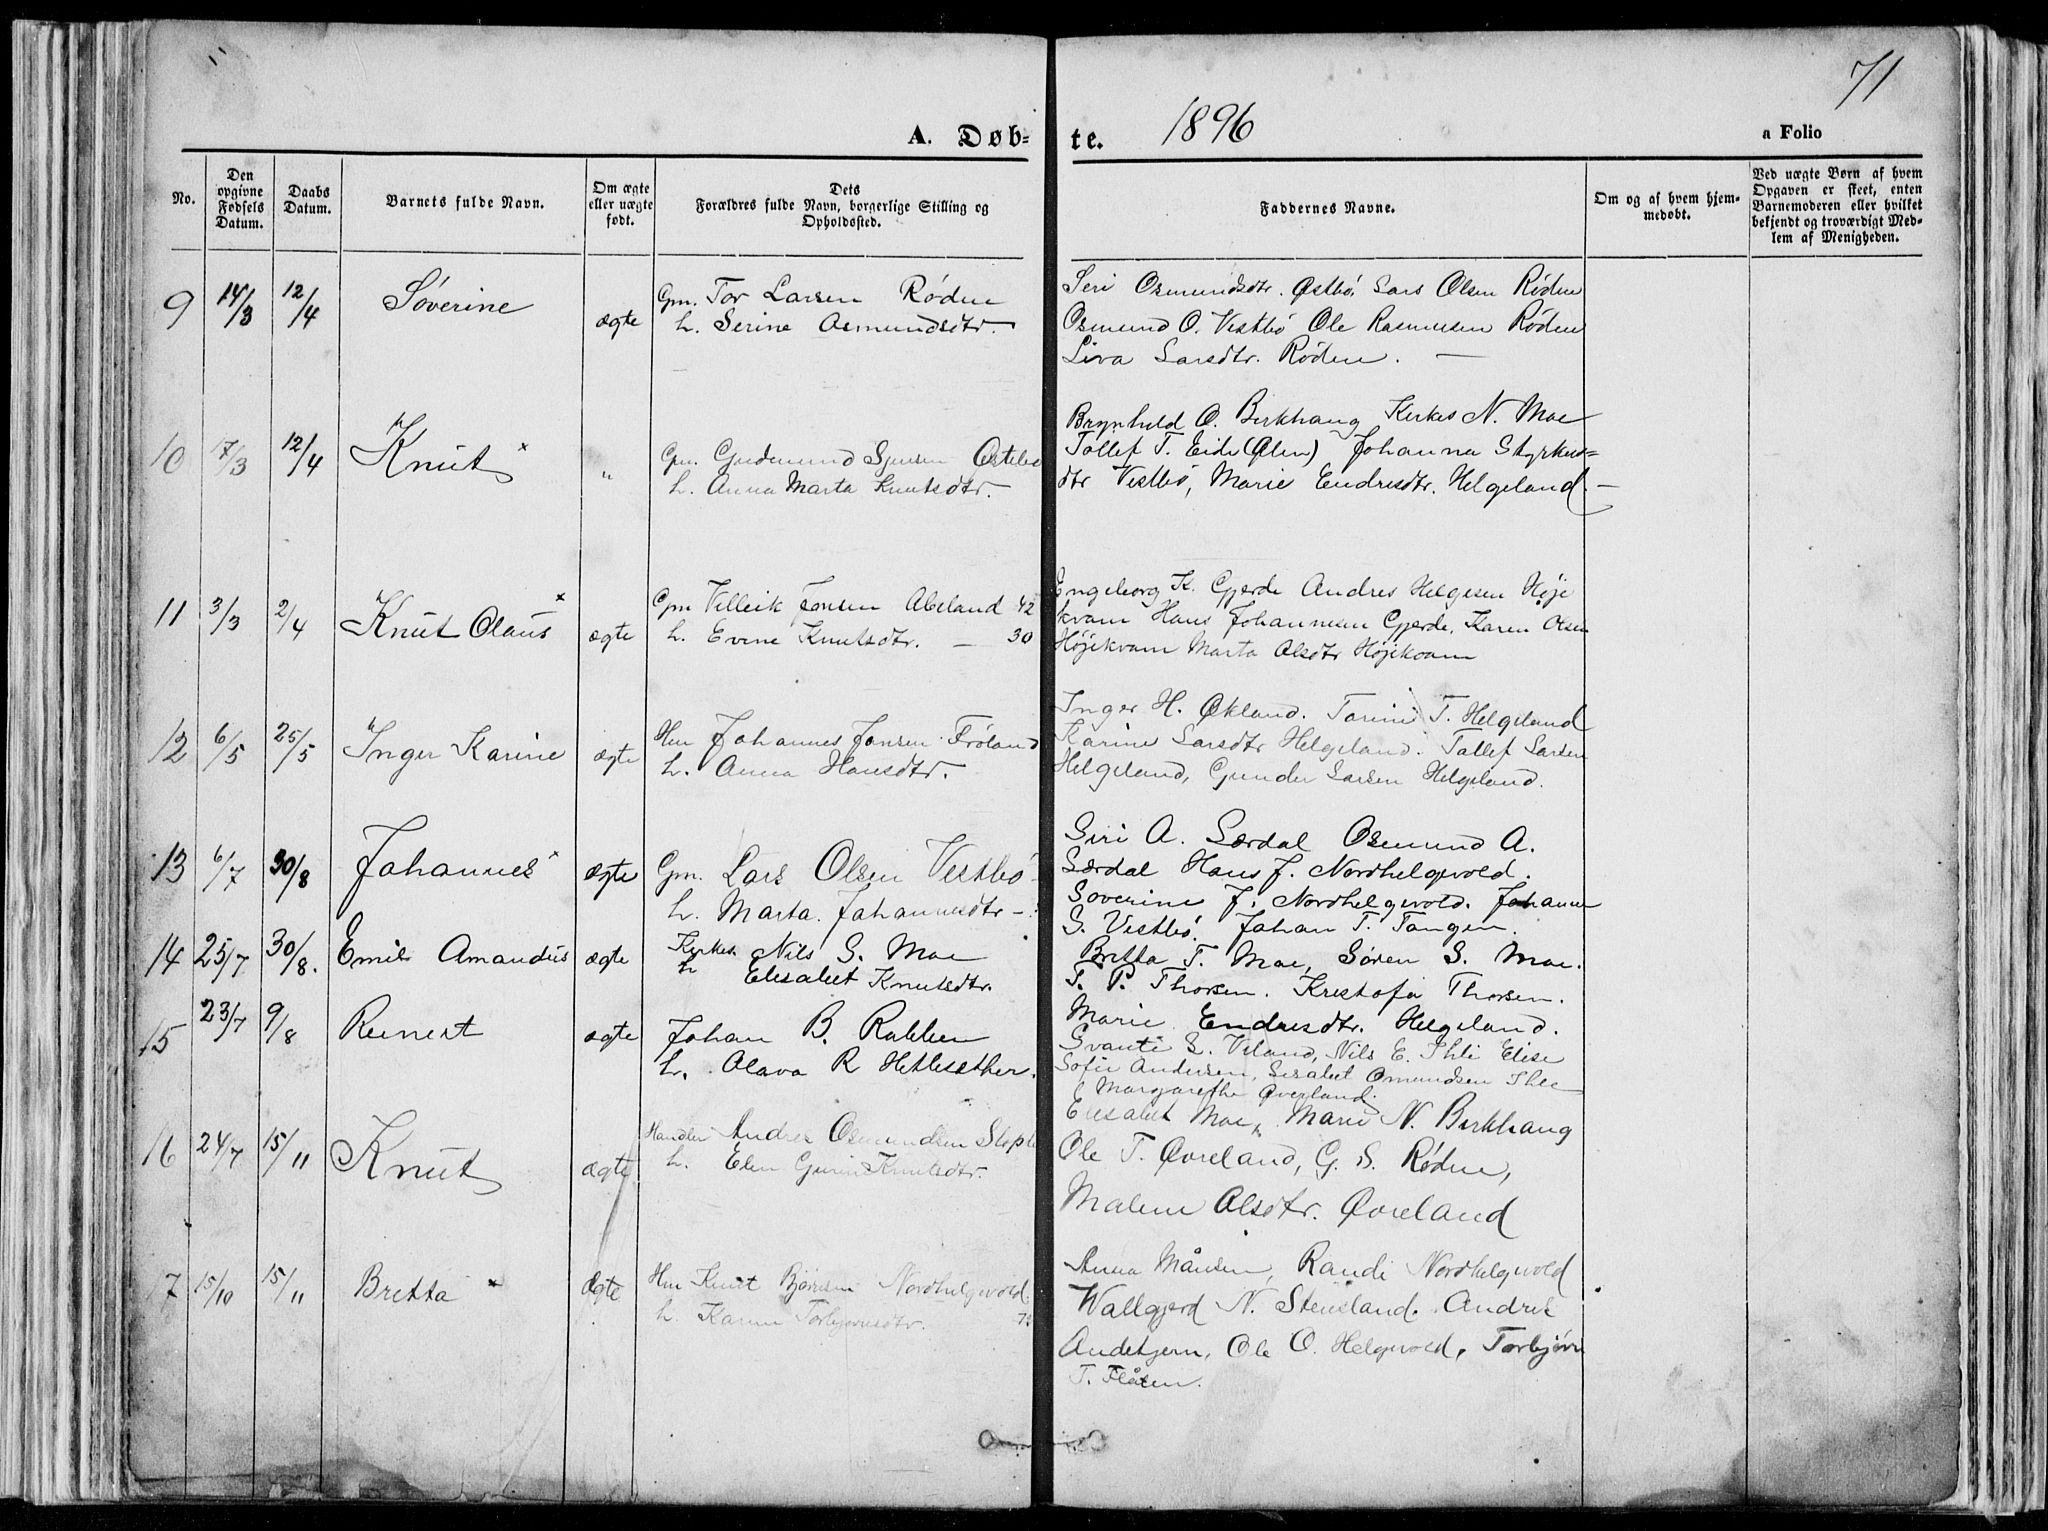 71
A. Døb-
te. 1896
a Folio
No.
Den opgivne Fødsels Datum.
Daabs Datum.
Barnets fulde Navn.
Om ægte eller uægte født.
Dets Forældres fulde Navn, borgerlige Stilling og Opholdssted.
Faddernes Navne.
Om og af hvem hjemmedøbt.
Ved uægte Børn af hvem Opgaven er skeet, enten Barnemoderen eller hvilket bekjendt og troværdigt Medlem af Menigheden.
9 14/3 12/4 Søverine ægte
Gm. Tor Larsen Røden
h. Serine Asmundsdtr. —
Seri Osmundsdtr. Østbö, Lars Olsen Röden
Osmund O. Vestbö Ole Rasmusen Röden
Liva Larsdtr. Röden. —
10 17/3 12/4 Knut x "
Gm. Gudmund Sjursen Østebø
h. Anna Marta Knutsdtr.
Brynhild O. Birkhaug Kirkes N. Moe
Tollef T. Eide (Ølen) Johanna Styrkes=
dtr Vestbö, Marie Endresdtr. Helgeland. —
11 3/3 2/4 Knut Olaus x ægte
Gm Villeik Jonsen Abeland 42
h. Evine Knutsdtr. — 30
Engeborg K. Gjerde Andres Helgesen Høje
kvam Hans Johannesen Gjerde, Karen Olsen
Højekvam Marta Olsdtr Højekvam
12 6/5 25/5 Inger Karine ægte
Hm Johannes Jonsen Fröland
h. Anna Hansdtr.
Inger H. Økland. Tarine T. Helgeland
Karine Larsdtr Helgeland. Tollef Larsen
Helgeland, Gunder Larsen Helgeland.
13 6/7 30/8 Johannes x ægte
Gm. Lars Olsen Vestbö
h. Marta Johannesdtr —
Siri A. Lærdal Osmund A.
Lærdal Hans J. Nordhelgevold.
Soverine J. Nordhelgevold. Johanne
S. Vestbö. Johan T. Tangen.
14 25/7 30/8. Emil Amandus ægte
Kirkes. Nils S. Moe
h Elisabet Knutsdtr.
Britta T. Moe, Søren S. Moe.
T. P. Thorsen. Kristofa Thorsen.
Marie Endresdtr. Helgeland.
15 23/7 9/8 Reinert ægte
Johan B. Rakken
h. Olava R Hetlesæther.
Svante L. Viland, Nils E. Ihle Elise
Sofie Andersen, Lisabet Omundsen Ihle
Margarethe Øverland.
16 24/7 15/11 Knut ægte
Handler Andres Osmundsen
h. Elen Gurine Knutsdtr.
Elisabet Moe, Marie N. Birkhaug
Ole T. Øvreland, G. S. Röden,
Malene Olsdtr. Øvreland
17 15/10 15/11 Britta x ægte
Hm Knut Bjørnsen Nordhelgevold
h. Karen Torbjørnsdtr.
Anna Månsen, Randi Nordhelgevold
Wallgjerd N. Stensland. Andrek
Andetjern, Ole O. Helgevold, Torbjörn
T. Flåten.